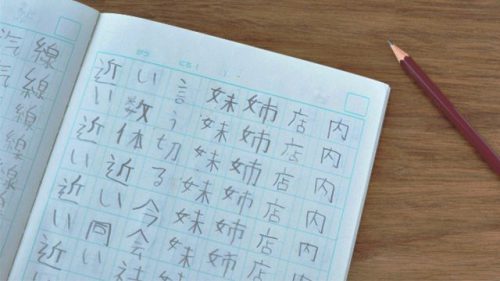 内内内内内内
店店店店店店
姉姉姉姉姉姉
妹妹妹妹妹妹
言う切る今会社
い数体近い同い
近い近い近い近
線線線線線
汽